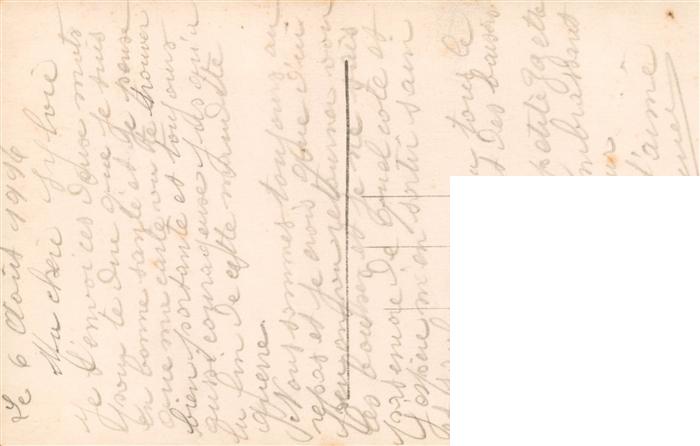 Le 6 Août 1916
Ma chère Sylvie
Je t'envoi ces deux mots
pour te dire que je suis
en bonne santé et je pense
que ma carte va te trouver
bien portante et toujours
aussi courageuse jusqu'à
la fin de cette maudite
guerre.
Nous sommes toujours au
repos et je crois que d'ici
retourner voir
les boches et je ne suis
de quel côté et
j'espère m'en sortir sain
tous le
des baisers
petite
embrassant
t'aime